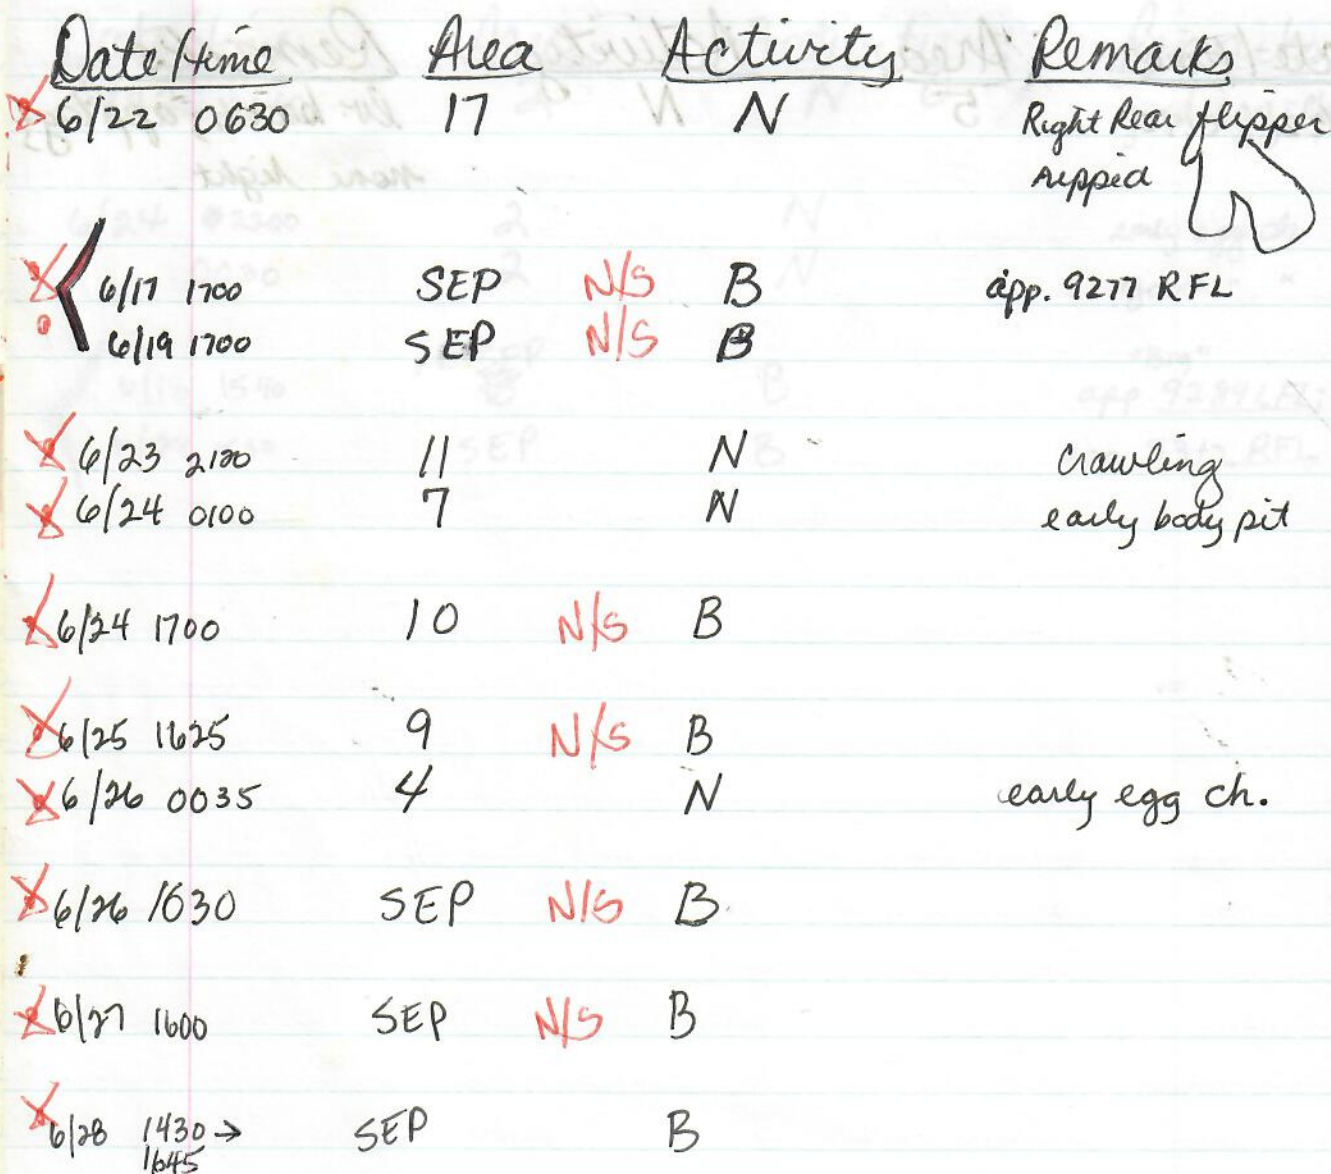 Date/time Area Activity Remarks
6/22 0630 17 N Right Rear flipper
ripped
6/17 1700 SEP N/S B app. 9277 RFL
6/19 1700 SEP N/S B
6/23 2120 11 N Crawling
6/24 0100 7 N early body pit
6/24 1700 10 N/S B
6/25 1625 9 N/S B
6/26 0035 4 N early egg ch.
6/26 1630 SEP N/S B
6/27 1600 SEP N/S B
6/28 1430 → SEP B
1645